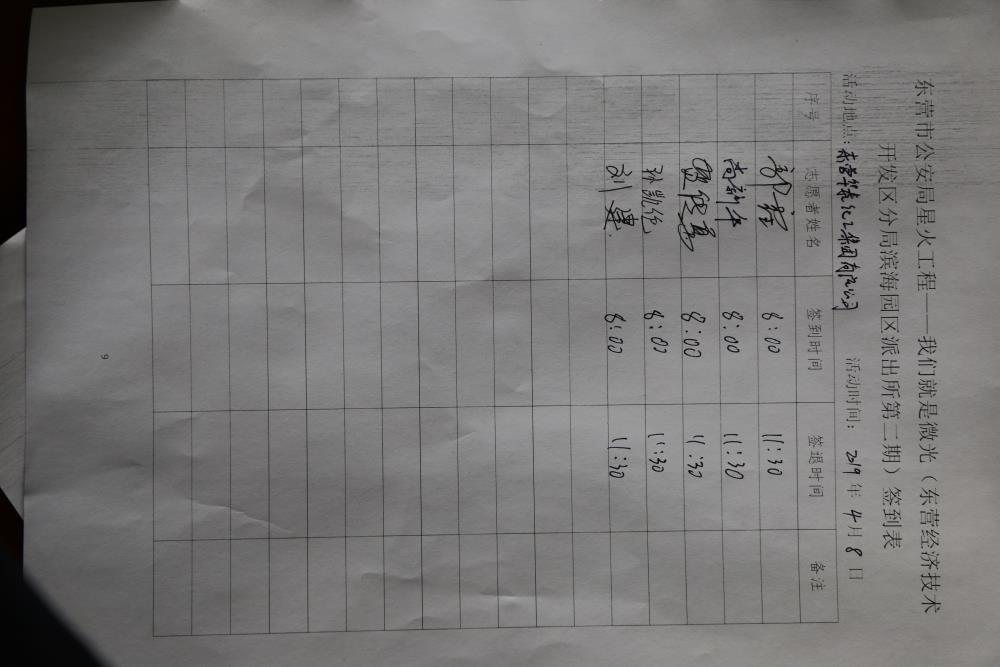 东营市公安局星火工程——我们就是微光（东营经济技术
开发区分局滨海园区派出所第二期）签到表
活动地点：东营华泰化工集团有限公司 活动时间：2019年4月8日
序号 志愿者姓名 签到时间 签退时间 备注
8:00 11:30
尚新年 8:00 11:30
8:00 11:30
孙凯伦 8:00 11:30
刘建 8:00 11:30
9